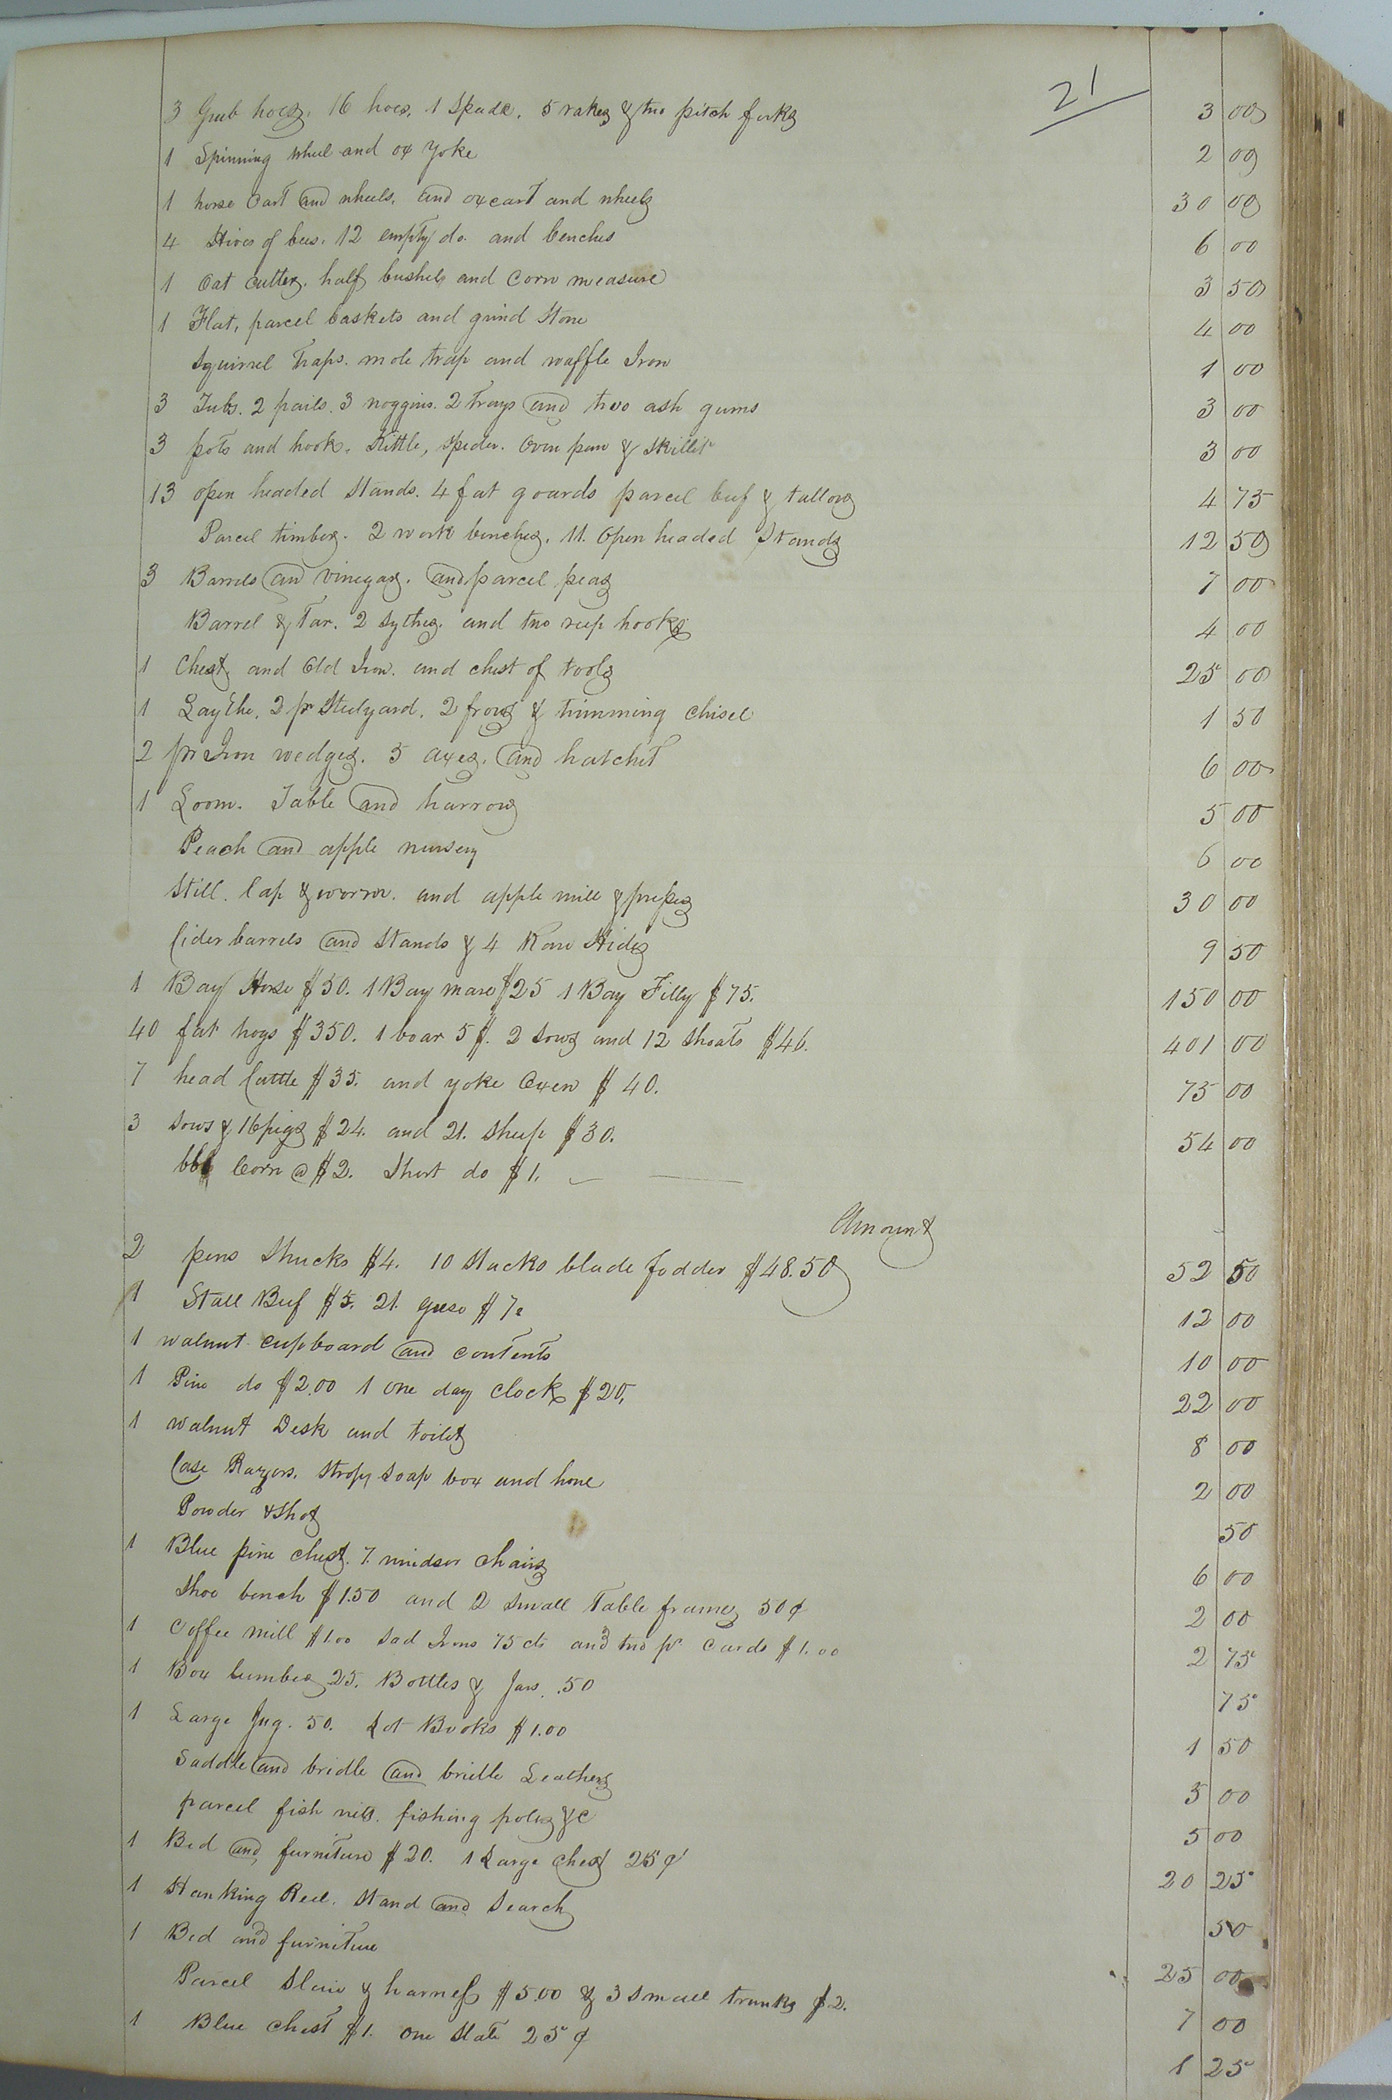 21
3 Grub hoes, 16 hoes, 1 Spade, 5 rakes & two pitch forks 3 00
1 Spinning wheel and ox Yoke 2 00
1 horse Cart and wheels, and ox cart and wheels 30 00
4 Hives of bees, 12 empty do. and benches 6 00
1 Oat Cutter, half bushel and Corn measure 3 50
1 Flat, parcel baskets and grind Stone 4 00
Squirrel Traps, mole trap and waffle Iron 1 00
3 Tubs, 2 pails, 3 noggins, 2 Trays and two ash gums 3 00
3 pots and hook, Kittle, spider, Oven pan & Skillit 3 00
13 open headed Stands, 4 fat gourds parcel beef & tallow 4 75
Parcel timber, 2 work benches, 11 Open headed Stands 12 50
3 Barrels and vinegar, and parcel peas 7 00
Barrel & Tar, 2 Sythes, and two reep hooks 4 00
1 Chest and Old Iron, and chest of tools 25 00
1 Laythe, 2 pr Steelyard, 2 frows & trimming chisel 1 50
2 pr Iron wedges, 5 axes, and hatchet 6 00
1 Loom, Table and harrows 5 00
Peach and apple nursery 6 00
Still, Cap & worm, and apple mill & presses 30 00
Cider barrels and Stands & 4 Raw Hides 9 50
1 Bay Horse $50. 1 Bay mare $25 1 Bay Filly $75. 150 00
40 fat hogs $350. 1 boar 5$. 2 Sows and 12 Shoats $46. 401 00
7 head Cattle $35. and yoke Oxen $40. 75 00
3 Sows & 16 pigs $24. and 21. Sheep $30. 54 00
bbl Corn @ $2. Short do $1.
Amount
2 pens Shucks $4. 10 Stacks blade fodder $48.50 52 50
1 Stall Beef $5. 21. geese $7. 12 00
1 walnut cupboard and contents 10 00
1 Pine do $2.00 1 one day clock $20. 22 00
1 walnut Desk and toilet 8 00
Case Razors, Strop, Soap box and hone 2 00
Powder & Shot 50
1 Blue pine chest, 7 windsor chairs 6 00
Shoe bench $1.50 and 2 Small Table frames 50¢ 2 00
1 Coffee mill $1.00 Sad Irons 75 cts and two pr Cards $1.00 2 75
1 Box lumber 25. Bottles & Jars .50 75
1 Large Jug. 50. Lot Books $1.00 1 50
Saddle and bridle and bridle Leathers 5 00
parcel fish nett, fishing poles &C 5 00
1 Bed and furniture $20. 1 Large chest 25¢ 20 25
1 Hanking Reel, Stand and Search 50
1 Bed and furniture 25 00
Parcel Slaie & harness $5.00 & 3 Small trunks $2. 7 00
1 Blue Chest $1. one Slate 25¢ 1 25